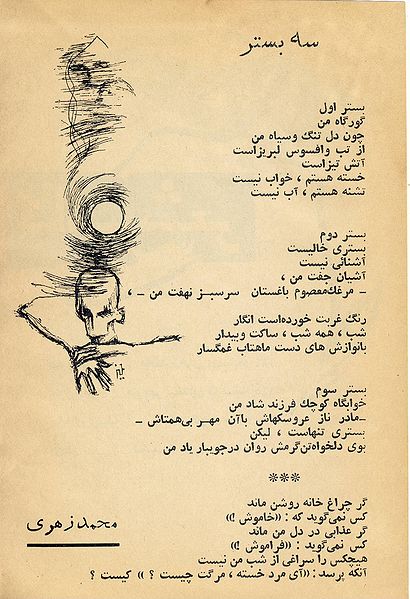 سه بستر
بستر اول
گورگاه من
چون دل تنگ وسیاه من
از تب وافسوس لبریزاست
آتش تیزاست
خسته هستم ، خواب نیست
تشنه هستم ، آب نیست
بستر دوم
بستری خالیست
آشنائی نیست
آشیان جفت من ،
ـ مرغك‌معصوم باغستان سرسبز نهفت من ـ ،
رنگ غربت خورده‌است انگار
شب ، همه شب ، ساکت وبیدار
بانوازش های دست ماهتاب غمگسار
بستر سوم
خوابگاه کوچك فرزند شاد من
ـمادر ناز عروسکهاش باآن مهر بی‌همتاش ـ
بستری تنهاست ، لیکن
بوی دلخواه‌تن‌گرمش روان درجویبار یاد من
***
گر چراغ خانه روشن ماند
کس نمی‌گوید که : ((خاموش !))
گر عذابی در دل من ماند
کس نمی‌گوید : ((فراموش !))
هیچکس را سراغی از شب من نیست
آنکه پرسد : ((آی مرد خسته ، مرگت چیست ؟ )) کیست ؟
محمد زهری